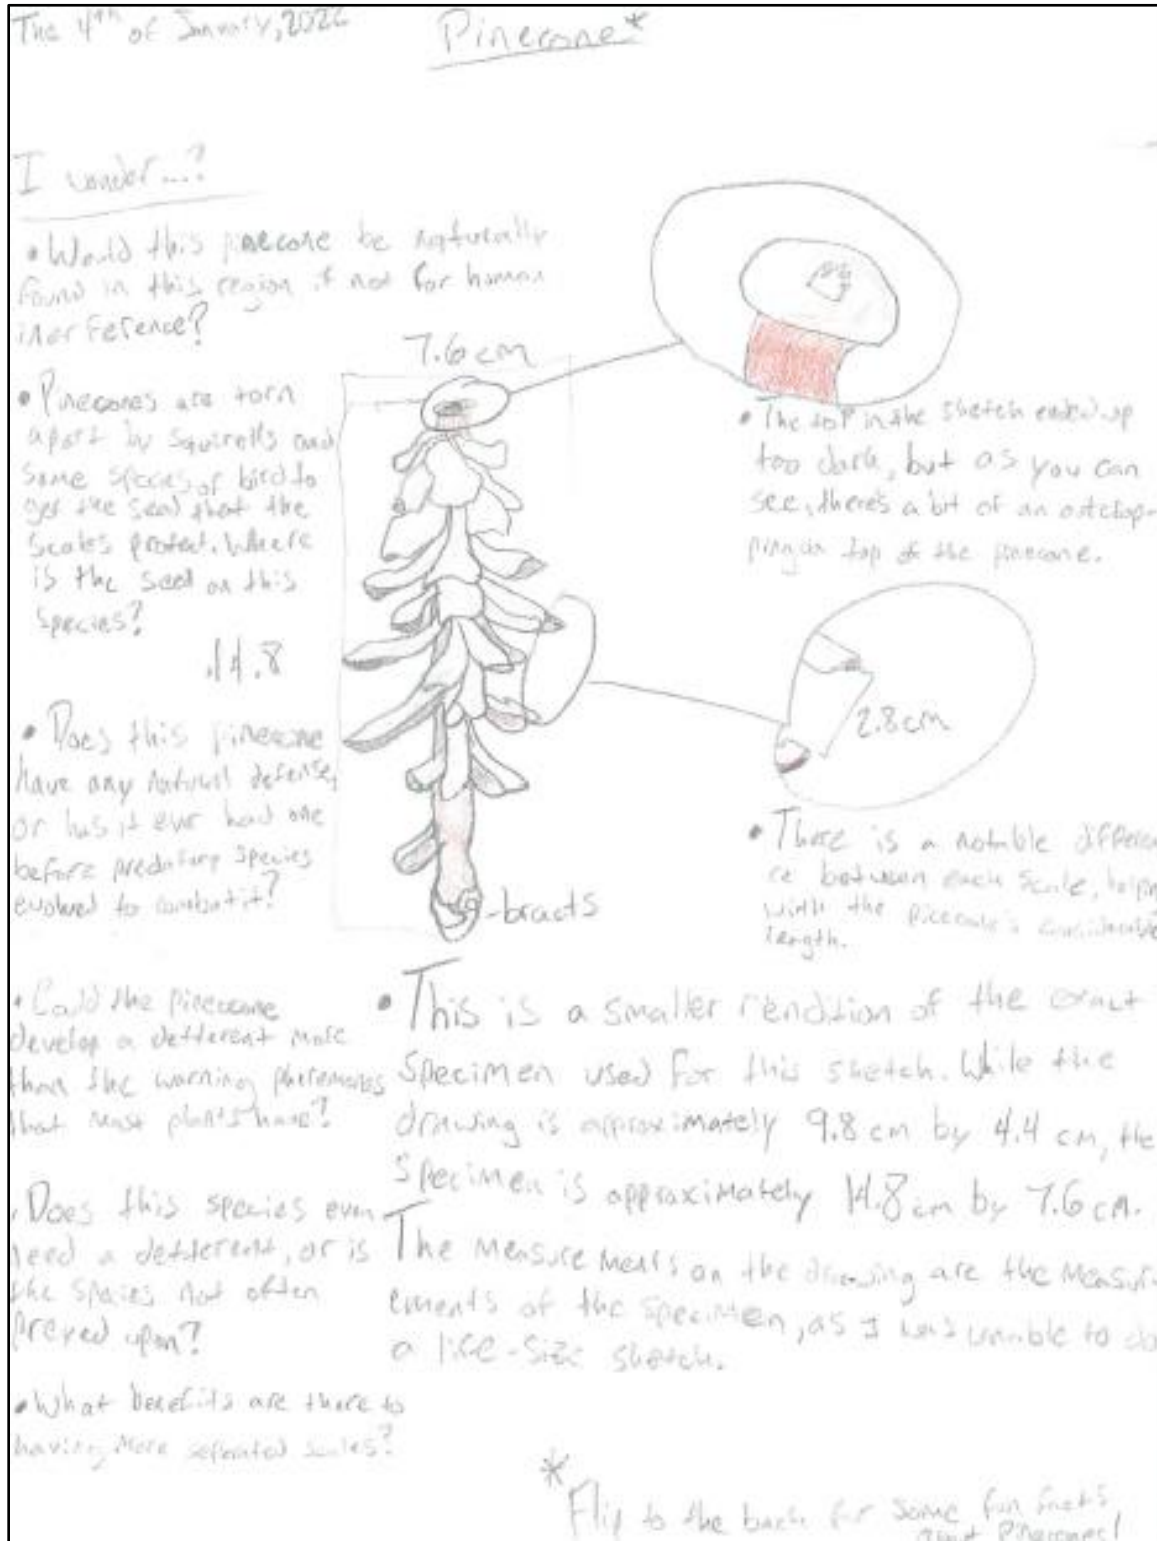 The 4th of January, 2022
Pinecone*
I wonder...?
• Would this pinecone be naturally
found in this region if not for human
inerference?
7.6 cm
• Pinecones are torn
apart by squirells and
some species of bird to
get the seed that the
scales protect. Where
is the seed on this
species?
14.8
• Does this pinecone
have any natural defense,
or has it ever had one
before predatory species
evolved to combat it?
• Could the pinecone
develop a detterent more
than the warning pheremones
that most plants have?
• Does this species even
need a detterent, or is
the species not often
preyed upon?
• What benefits are there to
having more seperated scales?
• The top in the sketch ended up
too dark, but as you can
see, there's a bit of an
ping on top of the pinecone.
2.8 cm
• There is a notable differen-
ce between each scale,
with the pinecone's considerable
length.
-bracts
• This is a smaller rendition of the exact
specimen used for this sketch. While the
drawing is approximately 9.8 cm by 4.4 cm, the
specimen is approximately 14.8 cm by 7.6 cm.
The measurements on the drawing are the measur-
ements of the specimen, as I was unable to do
a life-size sketch.
* Flip to the back for some fun facts
about pinecones!